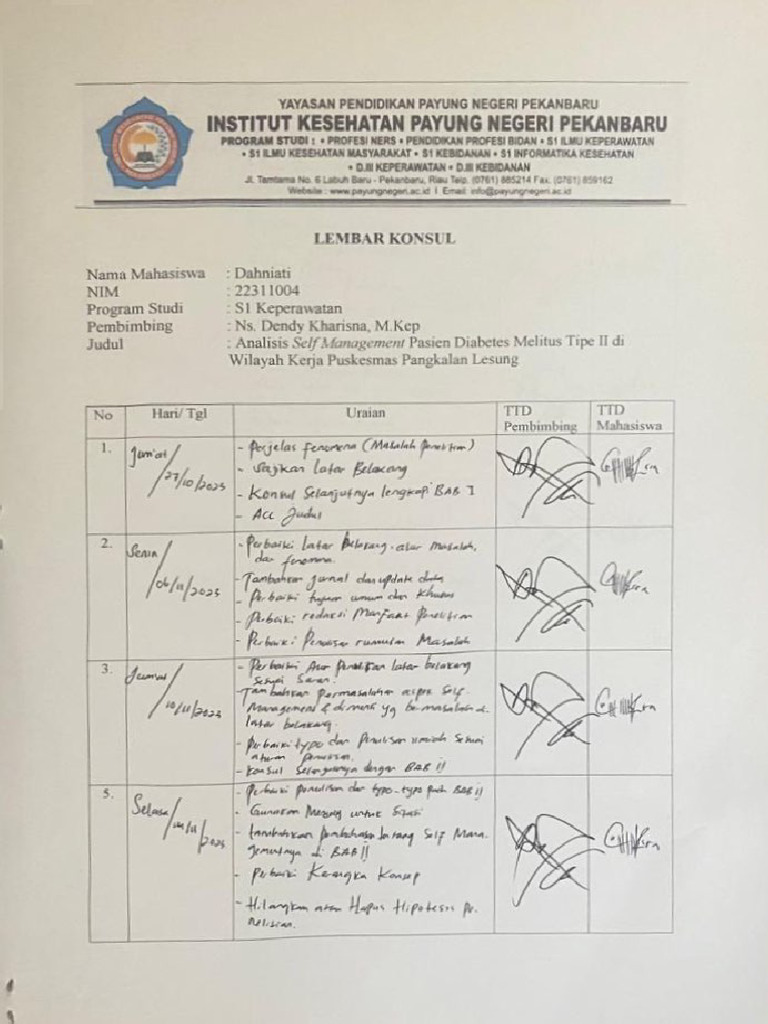 YAYASAN PENDIDIKAN PAYUNG NEGERI PEKANBARU
INSTITUT KESEHATAN PAYUNG NEGERI PEKANBARU
PROGRAM STUDI : • PROFESI NERS • PENDIDIKAN PROFESI BIDAN • S1 ILMU KEPERAWATAN
• S1 ILMU KESEHATAN MASYARAKAT • S1 KEBIDANAN • S1 INFORMATIKA KESEHATAN
• D.III KEPERAWATAN • D.III KEBIDANAN
Jl. Tamtama No. 6 Labuh Baru - Pekanbaru, Riau Telp. (0761) 885214 Fax. (0761) 859162
Website : www.payungnegeri.ac.id I Email: info@payungnegeri.ac.id
LEMBAR KONSUL
Nama Mahasiswa : Dahniati
NIM : 22311004
Program Studi : S1 Keperawatan
Pembimbing : Ns. Dendy Kharisna, M.Kep
Judul : Analisis Self Management Pasien Diabetes Melitus Tipe II di
Wilayah Kerja Puskesmas Pangkalan Lesung
No Hari/ Tgl Uraian TTD Pembimbing TTD Mahasiswa
1. Jum'at /27/10/2023
- Perjelas fenomena (Masalah Penelitian)
- Sajikan Latar Belakang
- Konsul Selanjutnya lengkapi BAB I
- Acc Judul
2. Senin /06/11/2023
- Perbaiki Latar Belakang, alur Masalah,
dan fenomena.
- Tambahkan Jurnal dan update data
- Perbaiki tujuan umum dan Khusus
- Perbaiki redaksi Manfaat Penelitian
- Perbaiki Penulisan rumusan Masalah
3. Jumat /10/11/2023
- Perbaiki Alur Penulisan latar belakang
Sesuai Saran.
- Tambahkan Permasalahan Self
Management & yg bermasalah di
latar belakang.
- Perbaiki typo dan Penulisan ilmiah Sesuai
aturan Penulisan.
- Konsul Selanjutnya dengan BAB II
5. Selasa /14/11/2023
- Perbaiki Penulisan dan typo-typo pada BAB II
- Gunakan untuk Sitasi
- tambahkan Pembahasan tentang Self Mana
gementnya di BAB II
- Perbaiki Kerangka Konsep
- Hilangkan atau Hapus Hipotesis Pe
nelitian.